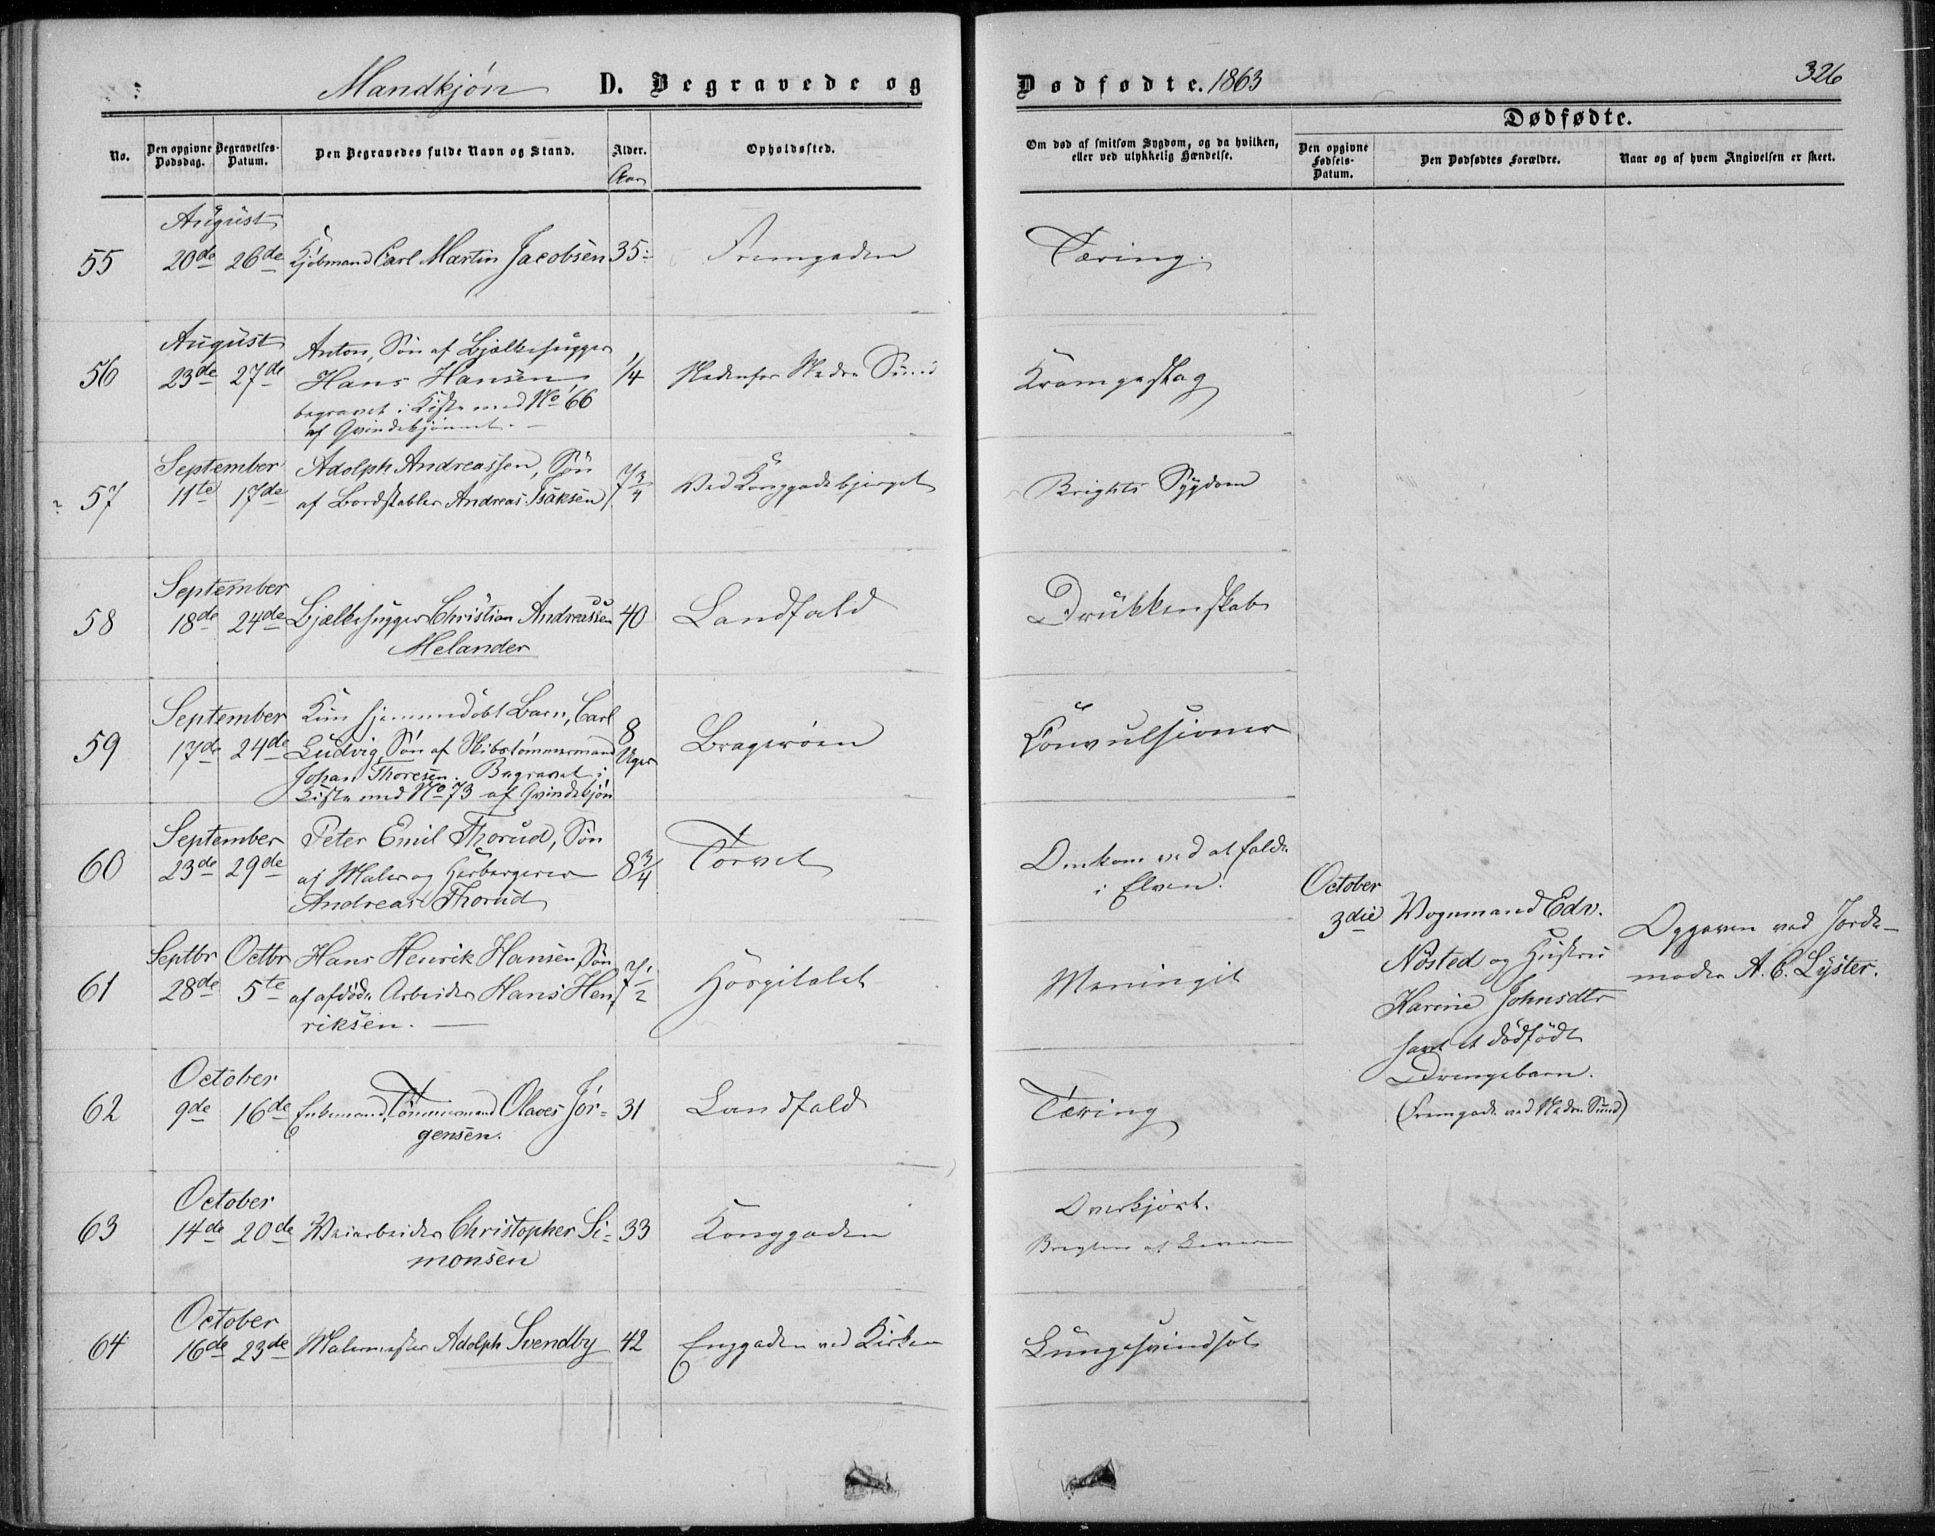 Mandkjøn D. Begravede og Dødfødte. 1863 326
No.
Den opgivne Dødsdag.
Begravelses-Datum.
Den Begravedes fulde Navn og Stand.
Alder.
Aar
Opholdssted.
Om død af smitsom Sygdom, og da hvilken,
eller ved ulykkelig Hændelse.
Dødfødte.
Den opgivne Fødsels-Datum.
Den Dødfødtes Forældre.
Naar og af hvem Angivelsen er skeet.
August
55 20de 26de Kjøbmand Carl Martin Jacobsen 35 Fremgaden Tæring.
August
56 23de 27de Anton, Søn af Bjælkehugger
Hans Hansen,
begravet i Kiste med No 66
af Qvindekjønnet.
1/4 Nedenfor Nedre Sund Krampeslag
September
57 11te 17de Adolph Andreassen, Søn
af Bordstabler Andreas Isaksen
7 3/4 Ved Konggadebjerget Brights Sygdom
September
58 18de 24de Bjælkehugger Christian Andreassen
Melander
40 Landfald Drukkenskab
September
59 17de 24de Kun hjemmedøbt Barn, Carl
Ludvig, Søn af Skibstømmermand
Johan Thoresen. Begravet i
Kiste med No 73 af Qvindekjøn
8 Uger Bragerøen Convulsioner
September
60 23de 29de Peter Emil Thorud, Søn
af Maler og Herbergerer
Andreas Thorud
8 3/4 Torvet Omkom ved at falde
i Elven.
Septbr Octbr
61 28de 5te Hans Henrik Hansen, Søn
af afdøde Arbeider Hans Hen
riksen.
7 1/2 Hospitalet Meningit
October
62 9de 16de Enkemand, Tømmermand Olaves Jør-
gensen.
31 Landfald Tæring
October
63 14de 20de Veiarbeider Christopher Si-
monsen
33 Konggaden Overkjørt.
af Leveren
October
64 16de 23de Malermester Adolph Svendby 42 Enggaden ved Kirken Lungesvindsot
October
3die Vognmand Edv.
Nøsted og Hustru
Karine Johnsdtr
havt et dødfødt
Drengebarn.
(Fremgade ved Nedre Sund)
Opgiven ved Jorde-
moder A. C. Lyster.